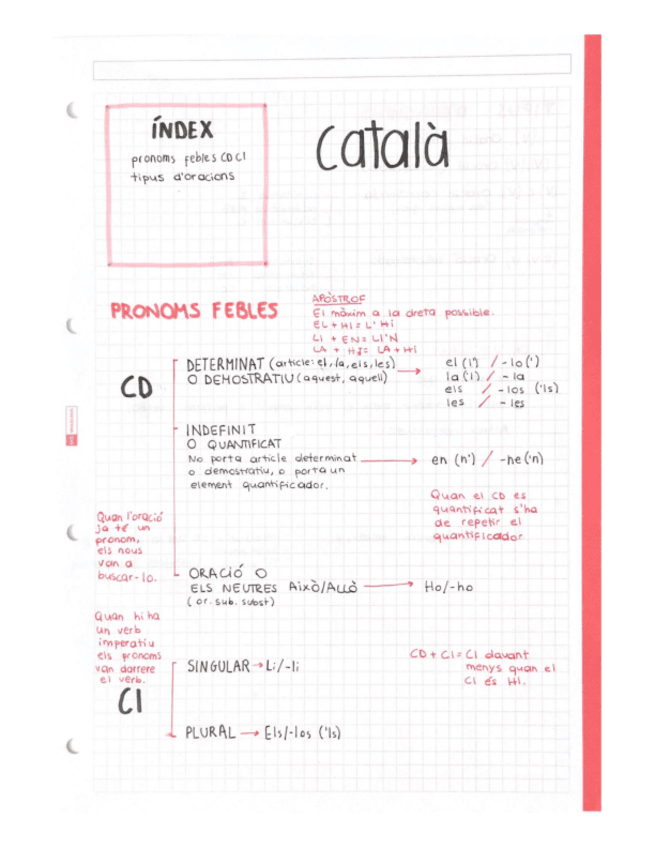 ÍNDEX
pronoms febles CD CI
tipus d'oracions
Català
PRONOMS FEBLES
APÒSTROF
El màxim a la dreta possible.
EL + HI = L'HI
LI + EN = LI'N
LA + HI = LA + HI
CD
DETERMINAT (article: el, la, els, les)
O DEMOSTRATIU (aquest, aquell)
el (l') / -lo (')
la (l') / -la
els / -los ('ls)
les / -les
INDEFINIT
O QUANTIFICAT
No porta article determinat
o demostratiu, o porta un
element quantificador.
en (n') / -ne ('n)
Quan el CD es
quantificat s'ha
de repetir el
quantificador
Quan l'oració
ja té un
pronom,
els nous
van a
buscar-lo.
ORACIÓ O
ELS NEUTRES Això/Allò
(or. sub. subst)
Ho/-ho
Quan hi ha
un verb
imperatiu
els pronoms
van darrere
el verb.
CI
SINGULAR → Li/-li
PLURAL → Els/-los ('ls)
CD + CI = CI davant
menys quan el
CI és HI.